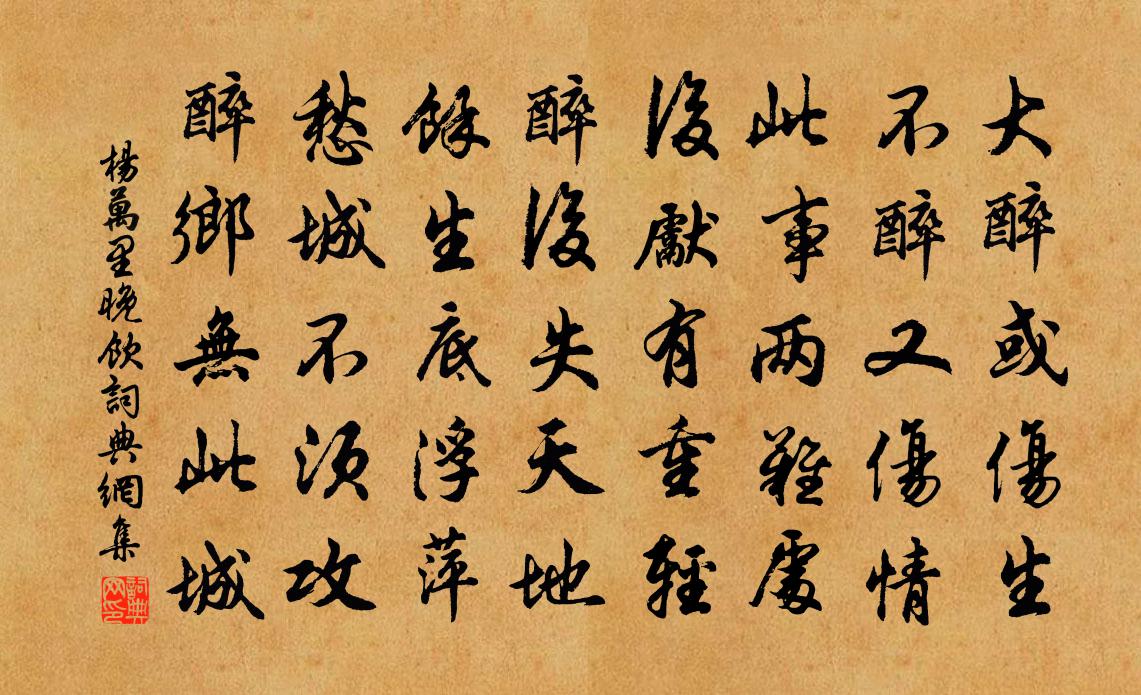 大醉或傷生
不醉又傷情
此事两難處
後獻有重輕
醉後失天地
餘生底浮萍
愁城不須攻
醉鄉無此城
楊萬里晚飲詞典網集
詞典
网印